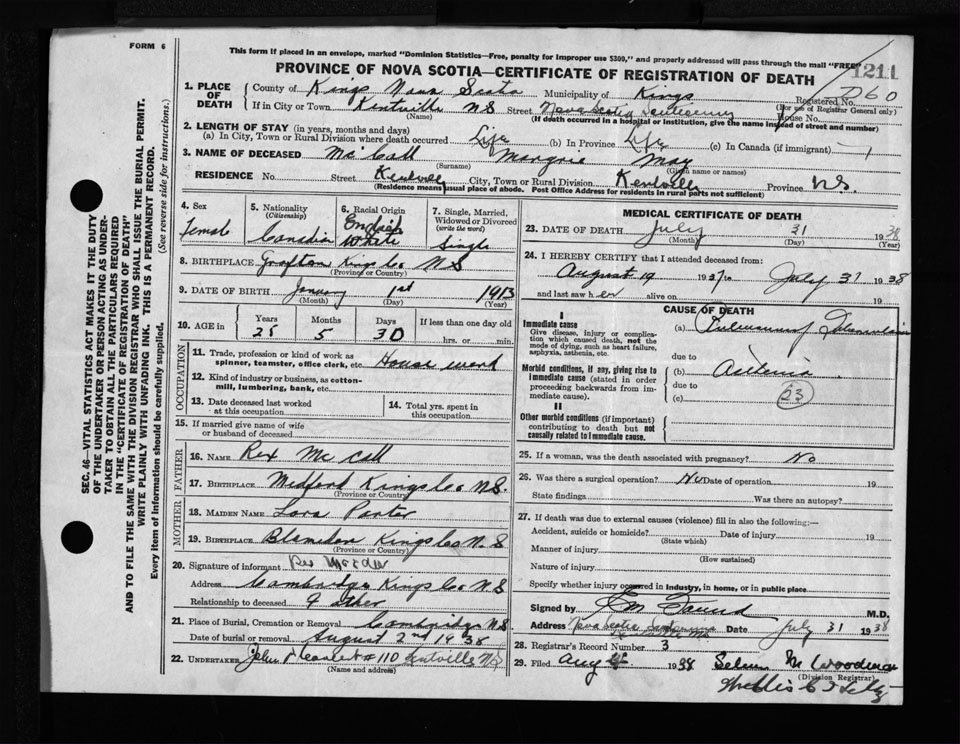 FORM 6
This form if placed in an envelope, marked "Dominion Statistics—Free, penalty for improper use $300," and properly addressed will pass through the mail "FREE"
1211
PROVINCE OF NOVA SCOTIA—CERTIFICATE OF REGISTRATION OF DEATH
1. PLACE OF DEATH
County of Kings Nova Scotia Municipality of Kings Registered No. D60
(For use of Registrar General only)
If in City or Town Kentville N S Street Nova Scotia House No.
(Name) (If death occurred in a hospital or institution, give the name instead of street and number)
2. LENGTH OF STAY (in years, months and days)
(a) In City, Town or Rural Division where death occurred Life (b) In Province Life (c) In Canada (if immigrant)
3. NAME OF DECEASED McCall Margrie May
(Surname) (Given name or names)
RESIDENCE No. Street Kentville City, Town or Rural Division Kentville Province N.S.
(Residence means usual place of abode. Post Office Address for residents in rural parts not sufficient)
SEC. 46—VITAL STATISTICS ACT MAKES IT THE DUTY
OF THE UNDERTAKER OR PERSON ACTING AS UNDER-
TAKER TO OBTAIN ALL THE PARTICULARS REQUIRED
IN THE "CERTIFICATE OF REGISTRATION OF DEATH"
AND TO FILE THE SAME WITH THE DIVISION REGISTRAR WHO SHALL ISSUE THE BURIAL PERMIT.
WRITE PLAINLY WITH UNFADING INK. THIS IS A PERMANENT RECORD.
Every item of information should be carefully supplied. (See reverse side for instructions.)
4. Sex
Female
5. Nationality
(Citizenship)
Canadia
6. Racial Origin
English
White
7. Single, Married,
Widowed or Divorced
(write the word)
Single
8. BIRTHPLACE Grafton Kings Co N S
(Province or Country)
9. DATE OF BIRTH January 1st 1913
(Month) (Day) (Year)
10. AGE in
Years Months Days If less than one day old
25 5 30 hrs. or min.
OCCUPATION
11. Trade, profession or kind of work as
spinner, teamster, office clerk, etc. House work
12. Kind of industry or business, as cotton-
mill, lumbering, bank, etc.
13. Date deceased last worked
at this occupation
14. Total yrs. spent in
this occupation
15. If married give name of wife
or husband of deceased
FATHER
16. NAME Rex McCall
17. BIRTHPLACE Medford Kings Co N.S.
(Province or Country)
MOTHER
18. MAIDEN NAME Lora Porter
19. BIRTHPLACE Blomidon Kings Co N. S
(Province or Country)
20. Signature of informant
Address Cambridge Kings Co N S
Relationship to deceased Father
21. Place of Burial, Cremation or Removal Cambridge N S
Date of burial or removal August 2nd 1938
22. UNDERTAKER John #110 Kentville N S
(Name and address)
MEDICAL CERTIFICATE OF DEATH
23. DATE OF DEATH July 31 1938
(Month) (Day) (Year)
24. I HEREBY CERTIFY that I attended deceased from:
August 19 1937 to July 31 1938
and last saw her alive on 19
CAUSE OF DEATH
I
Immediate cause
Give disease, injury or complica-
tion which caused death, not the
mode of dying, such as heart failure,
asphyxia, asthenia, etc.
(a) Pulmonary Tuberculosis
due to
Morbid conditions, if any, giving rise to
immediate cause (stated in order
proceeding backwards from im-
mediate cause).
(b)
due to
(c) 23
II
Other morbid conditions (if important)
contributing to death but not
causally related to immediate cause.
25. If a woman, was the death associated with pregnancy? No
26. Was there a surgical operation? No Date of operation 19
State findings Was there an autopsy?
27. If death was due to external causes (violence) fill in also the following:—
Accident, suicide or homicide? Date of injury 19
(State which)
Manner of injury
(How sustained)
Nature of injury
Specify whether injury occurred in industry, in home, or in public place
Signed by M.D.
Address Nova Scotia Date July 31 1938
28. Registrar's Record Number 3
29. Filed Aug 1938 Selma M Woodman
(Division Registrar)